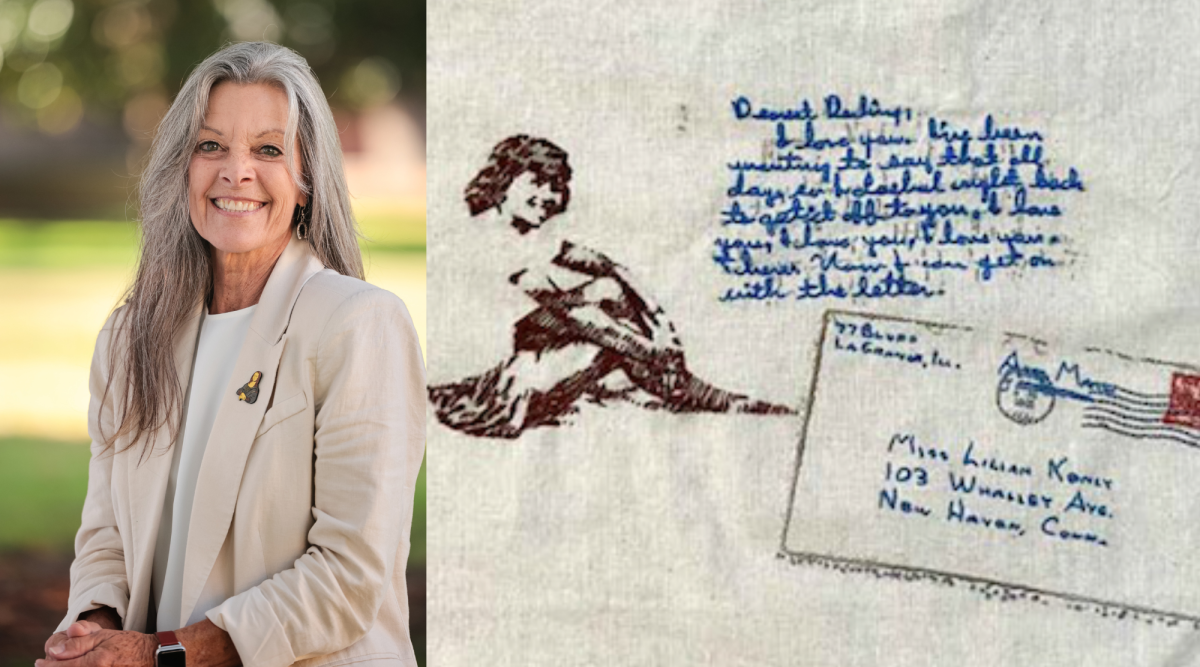 Dearest Darling,
I love you. I've been
wanting to say that all
day, so I dashed right back
to get it off to you. I love
you, I love you, I love you.
There. Now I can get on
with the letter.
77 Bluff
LaGrange, Ill.
Miss Lilian Konly
103 Whalley Ave.
New Haven, Conn.